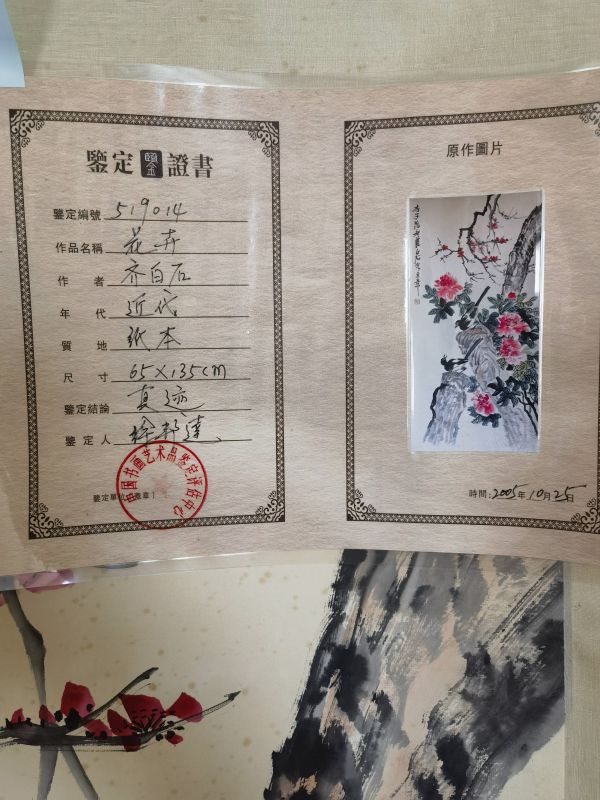 鑒定 鑒 證書
鑒定編號 519014
作品名稱 花卉
作者 齐白石
年代 近代
質地 紙本
尺寸 65×135cm
鑒定結論 真迹
鑒定人 徐邦達
鑒定單位(蓋章)
中国书画艺术品鉴定评估中心
原作圖片
時間:2005年10月25日